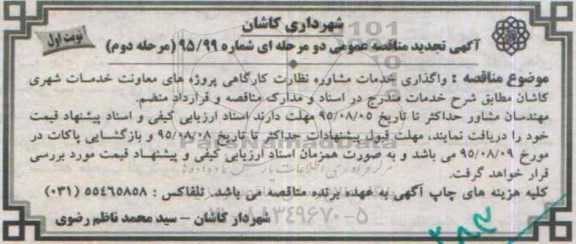 شهرداری کاشان
نوبت اول
آگهی تجدید مناقصه عمومی دو مرحله ای شماره ۹۵/۹۹ (مرحله دوم)
موضوع مناقصه : واگذاری خدمات مشاوره نظارت کارگاهی پروژه های معاونت خدمات شهری
کاشان مطابق شرح خدمات مندرج در اسناد و مدارک مناقصه و قرارداد منضم.
مهندسان مشاور حداکثر تا تاریخ ۹۵/۰۸/۰۵ مهلت دارند اسناد ارزیابی کیفی و اسناد پیشنهاد قیمت
خود را دریافت نمایند، مهلت قبول پیشنهادات حداکثر تا تاریخ ۹۵/۰۸/۰۸ و بازگشایی پاکات در
مورخ ۹۵/۰۸/۰۹ می باشد و به صورت همزمان اسناد ارزیابی کیفی و پیشنهاد قیمت مورد بررسی
قرار خواهد گرفت.
کلیه هزینه های چاپ آگهی به عهده برنده مناقصه می باشد. تلفاکس : ۵۵۴۶۵۸۵۸ (۰۳۱)
شهردار کاشان – سید محمد ناظم رضوی